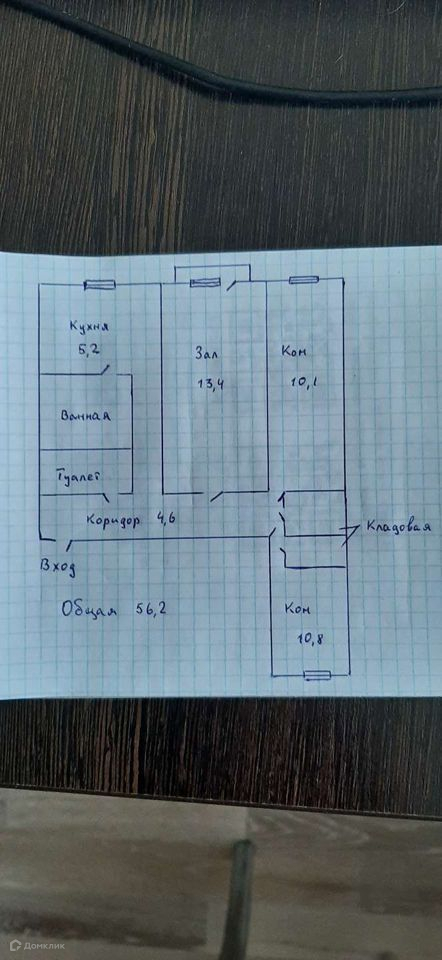 Кухня
5,2
Зал
13,4
Ком
10,1
Ванная
Туалет
Коридор 4,6
Кладовая
Вход
Общая 56,2
Ком
10,8
Домклик